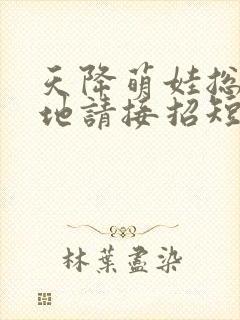 天降萌娃總
地請接招短
林葉盡染